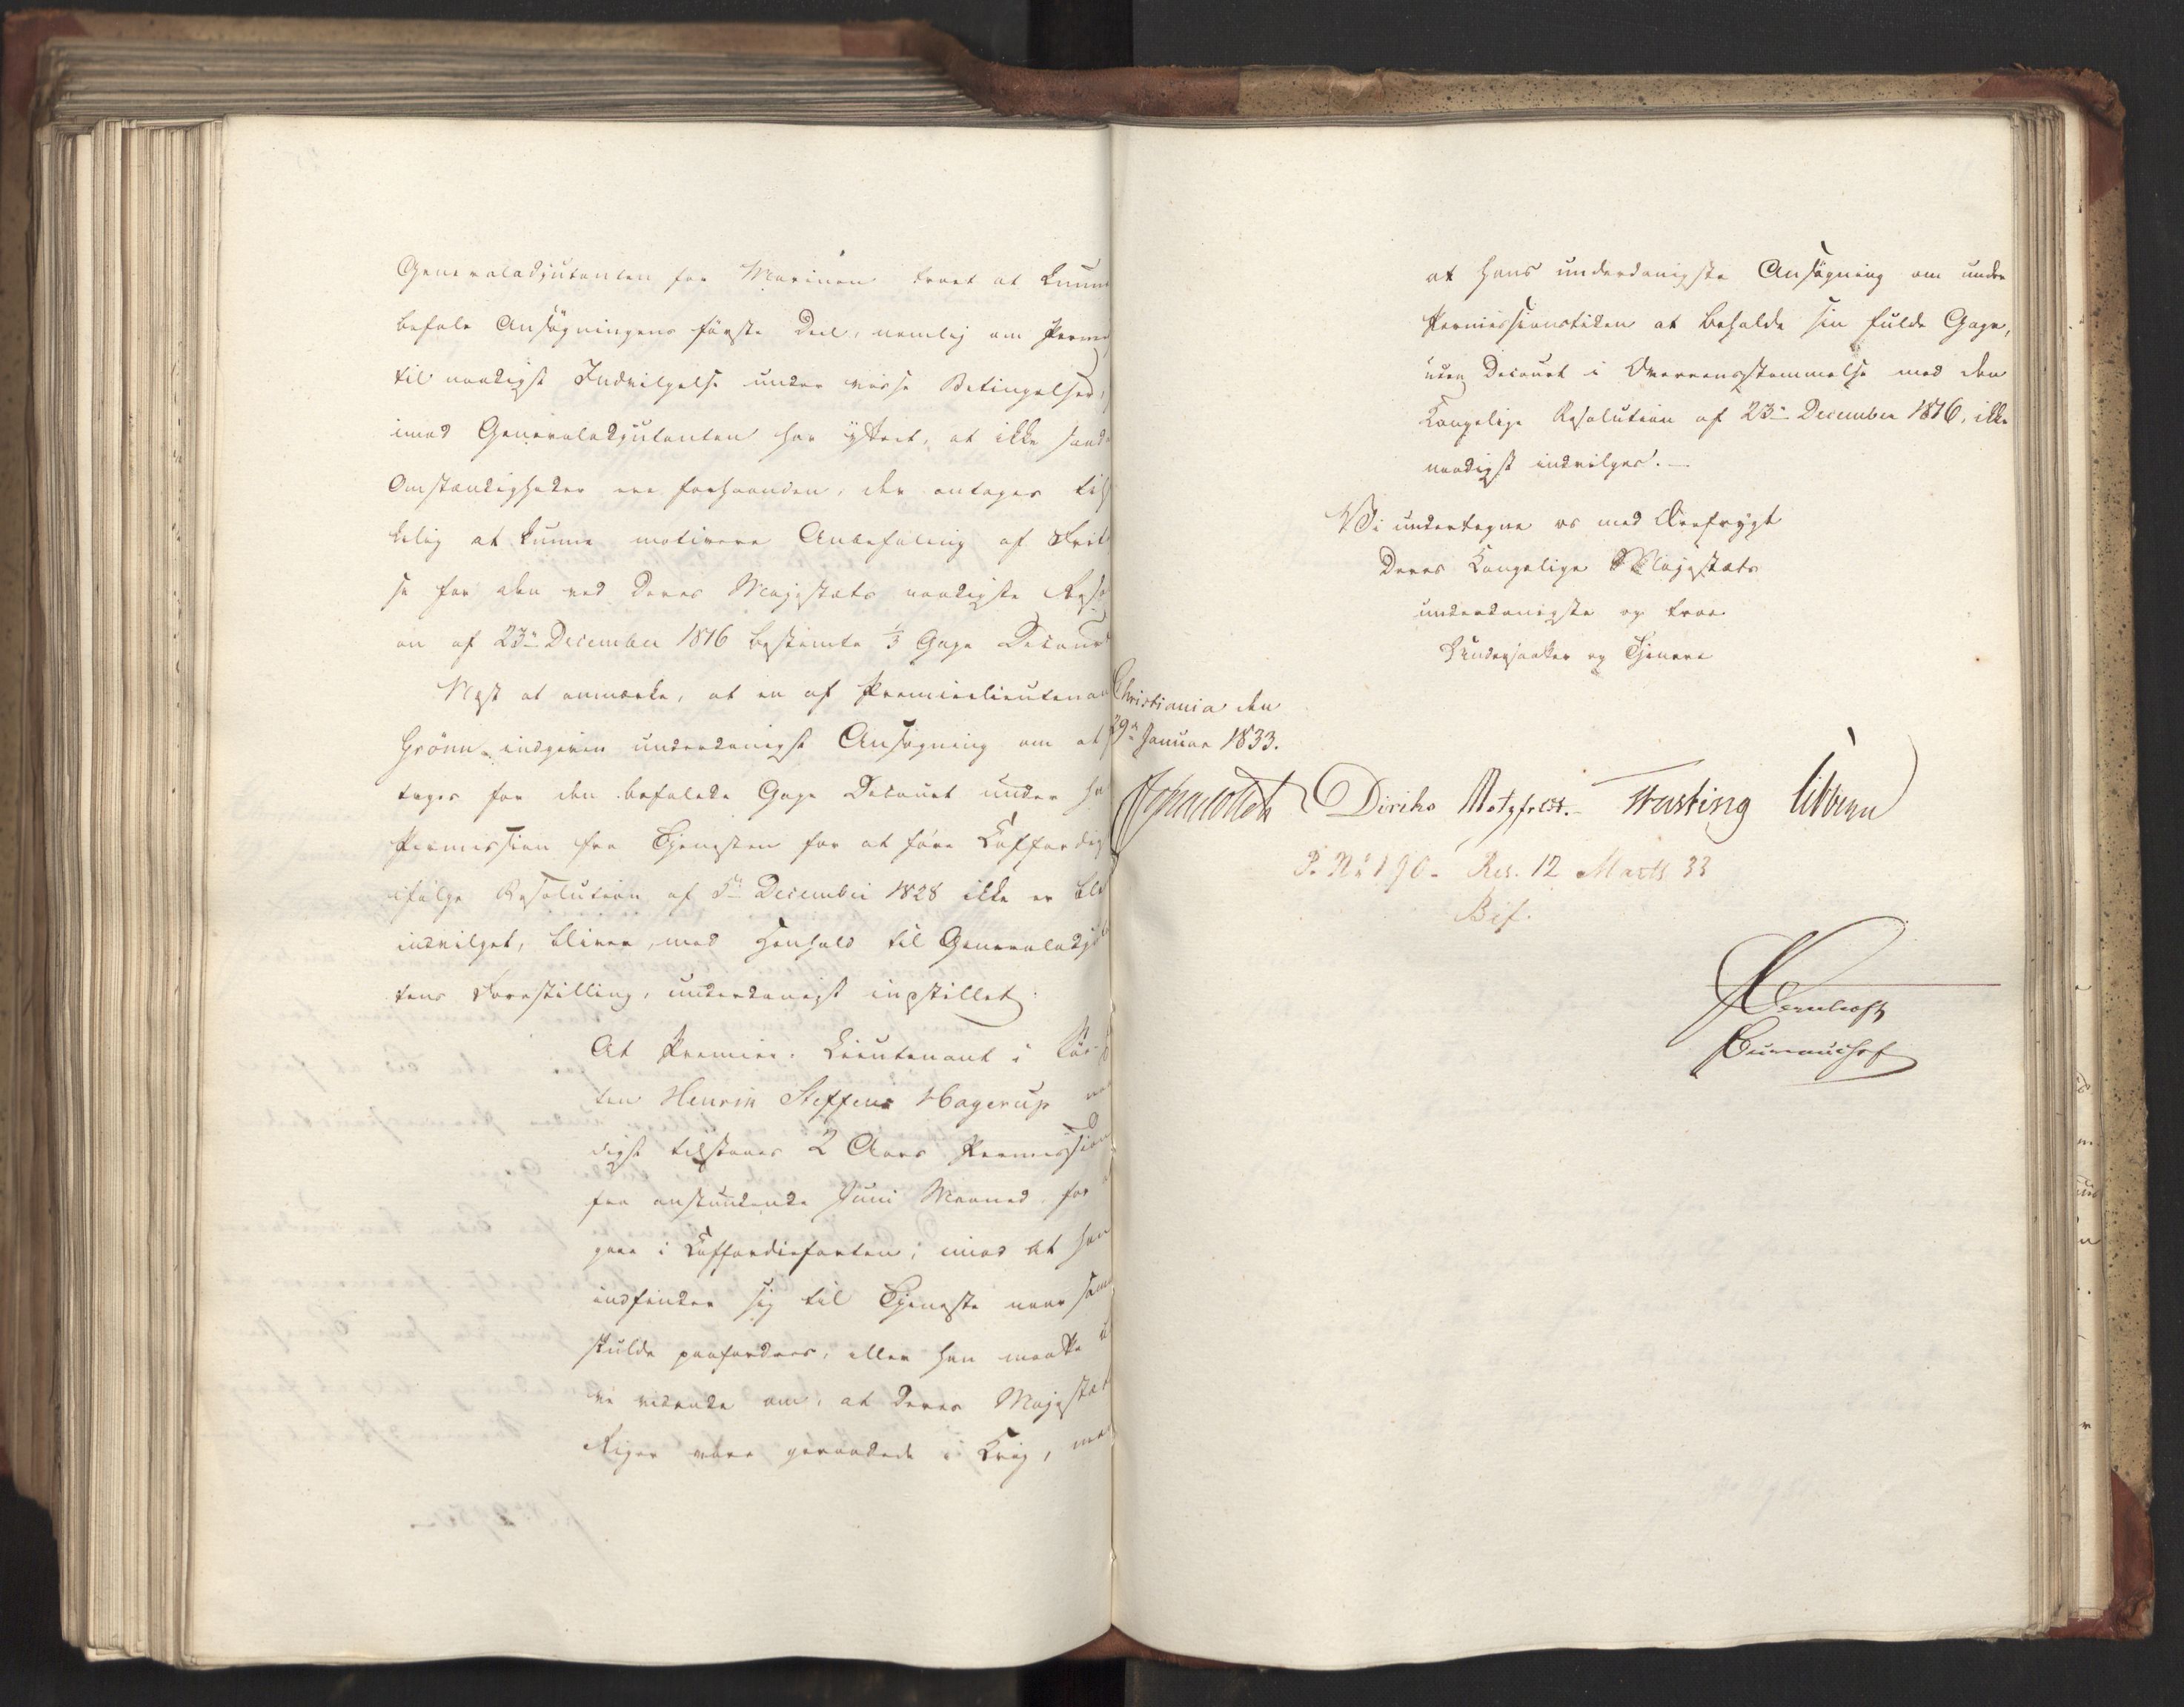 Generaladjutanten for Marinen troet at kunne
befale Ansøgningens første Deel, nemlig om Perm
til naadigst Indvilgelse under visse Betingelser,
imod Generaladjutanten har yttret, at ikke saad
Omstændigheder ere forhaanden, der antages til
kelig at kunne motivere Anbefaling af Frit
se for den ved Deres Majestæts naadigste Reso
on af 23de December 1816 bestemte 1/3 Gage Decourt
Næst at anmærke, at en af Premierlieutenan
Grönn indgiven underdanigst Ansøgning om at
tages for den befalede Gage Decourt under ha
Permission fra Tjenesten for at føre Coffardi
ifølge Resolution af 5te December 1828 ikke er ble
indvilget, bliver, med Henhold til Generaladju
tens Forestilling, underdanigst indstillet:
At Premier-Lieutenant i Søe
ten Henrik Steffens Hagerup naa
digst tilstaaes 2 Aars Permission
fra anstundende Juni Maaned for
gaae i Coffardiefarten; imod at han
indfinder sig til Tjeneste naar saa
skulde paafordres, eller han maatte
ve vidende om, at Deres Majestæts
Riger vare geraadede i Krig, me
at hans underdanigste Ansøgning om under
Permissionstiden at beholde sin fulde Gage,
uden Decourt i Overeensstemmelse med den
Kongelige Resolution af 23de December 1816, ikke
naadigst indvilges.
Vi undertegne os med Ærefrygt
Deres Kongelige Majestæts
underdanigste og troe
Undersaatter og Tjenere
Christiania den
29de Januar 1833.
Diriks Motzfeldt. Fasting Vibe
P. No 190. Res. 12 Marts 33
Bif.
Bureauchef